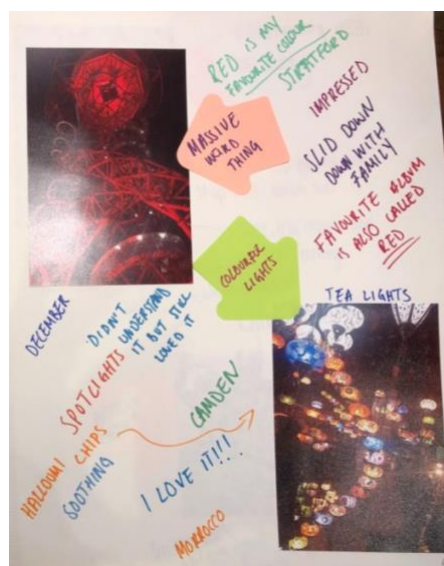 RED IS MY
FAVOURITE COLOUR
STRATFORD
IMPRESSED
MASSIVE
WEIRD
THING
SLID DOWN
DOWN WITH
FAMILY
FAVOURITE ALBUM
IS ALSO CALLED
RED
COLOURFUL
LIGHTS
TEA LIGHTS
DECEMBER
DIDN'T
UNDERSTAND
IT BUT STILL
LOVED IT
SPOTLIGHTS
CAMDEN
HALLOUMI CHIPS
SOOTHING
I LOVE IT!!!
MORROCCO